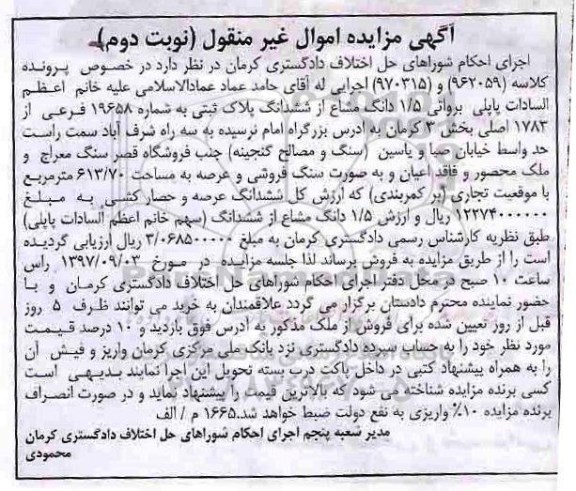 آگهی مزایده اموال غیر منقول (نوبت دوم)
اجرای احکام شوراهای حل اختلاف دادگستری کرمان در نظر دارد در خصوص پرونده
کلاسه (۹۶۲۰۵۹) و (۹۷۰۳۱۵) اجرایی له آقای حامد عماد عمادالاسلامی علیه خانم اعظم
السادات پاپلی بروائی ۱/۵ دانگ مشاع از ششدانگ پلاک ثبتی به شماره ۱۹۶۵۸ فرعی از
۱۷۸۳ اصلی بخش ۳ کرمان به آدرس بزرگراه امام نرسیده به سه راه شرف آباد سمت راست
حد واسط خیابان صبا و یاسین (سنگ و مصالح گنجینه) جنب فروشگاه قصر سنگ معراج و
ملک محصور و فاقد اعیان و به صورت سنگ فروشی و عرصه به مساحت ۶۱۳/۷۰ مترمربع
با موقعیت تجاری (بر کمربندی) که ارزش کل ششدانگ عرصه و حصار کشی به مبلغ
۱۲۲۷۴۰۰۰۰۰۰ ریال و ارزش ۱/۵ دانگ مشاع از ششدانگ (سهم خانم اعظم السادات پاپلی)
طبق نظریه کارشناس رسمی دادگستری کرمان به مبلغ ۳/۰۶۸۵۰۰۰۰۰ ریال ارزیابی گردیده
است را از طریق مزایده به فروش برساند لذا جلسه مزایده در مورخ ۱۳۹۷/۰۹/۰۳ راس
ساعت ۱۰ صبح در محل دفتر اجرای احکام شوراهای حل اختلاف دادگستری کرمان و با
حضور نماینده محترم دادستان برگزار می گردد علاقمندان به خرید می توانند ظرف ۵ روز
قبل از روز تعیین شده برای فروش از ملک مذکور به آدرس فوق بازدید و ۱۰ درصد قیمت
مورد نظر خود را به حساب سپرده دادگستری نزد بانک ملی مرکزی کرمان واریز و فیش آن
را به همراه پیشنهاد کتبی در داخل پاکت درب بسته تحویل این اجرا نمایند بدیهی است
کسی برنده مزایده شناخته می شود که بالاترین قیمت را پیشنهاد نماید و در صورت انصراف
برنده مزایده ۱۰٪ واریزی به نفع دولت ضبط خواهد شد.۱۶۶۵ م / الف
مدیر شعبه پنجم اجرای احکام شوراهای حل اختلاف دادگستری کرمان
محمودی